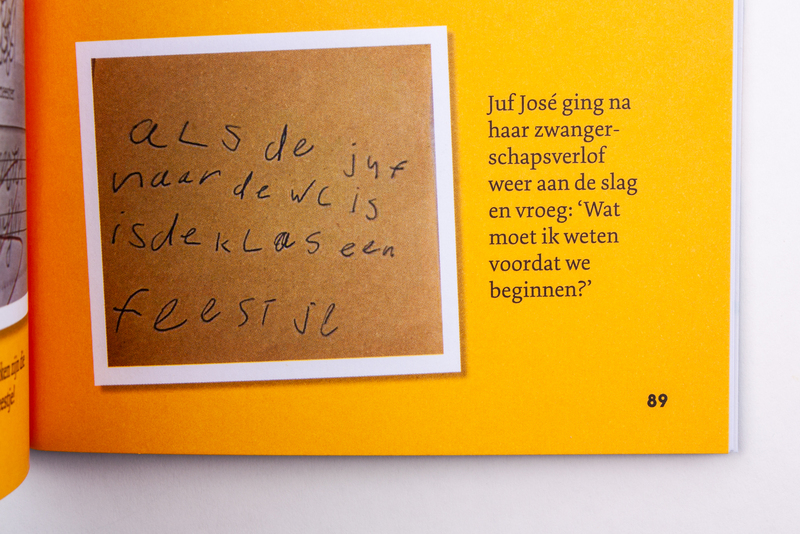 aLs de juf
naar de wc is
isdeklas een
feestje
Juf José ging na
haar zwanger-
schapsverlof
weer aan de slag
en vroeg: ‘Wat
moet ik weten
voordat we
beginnen?’
89